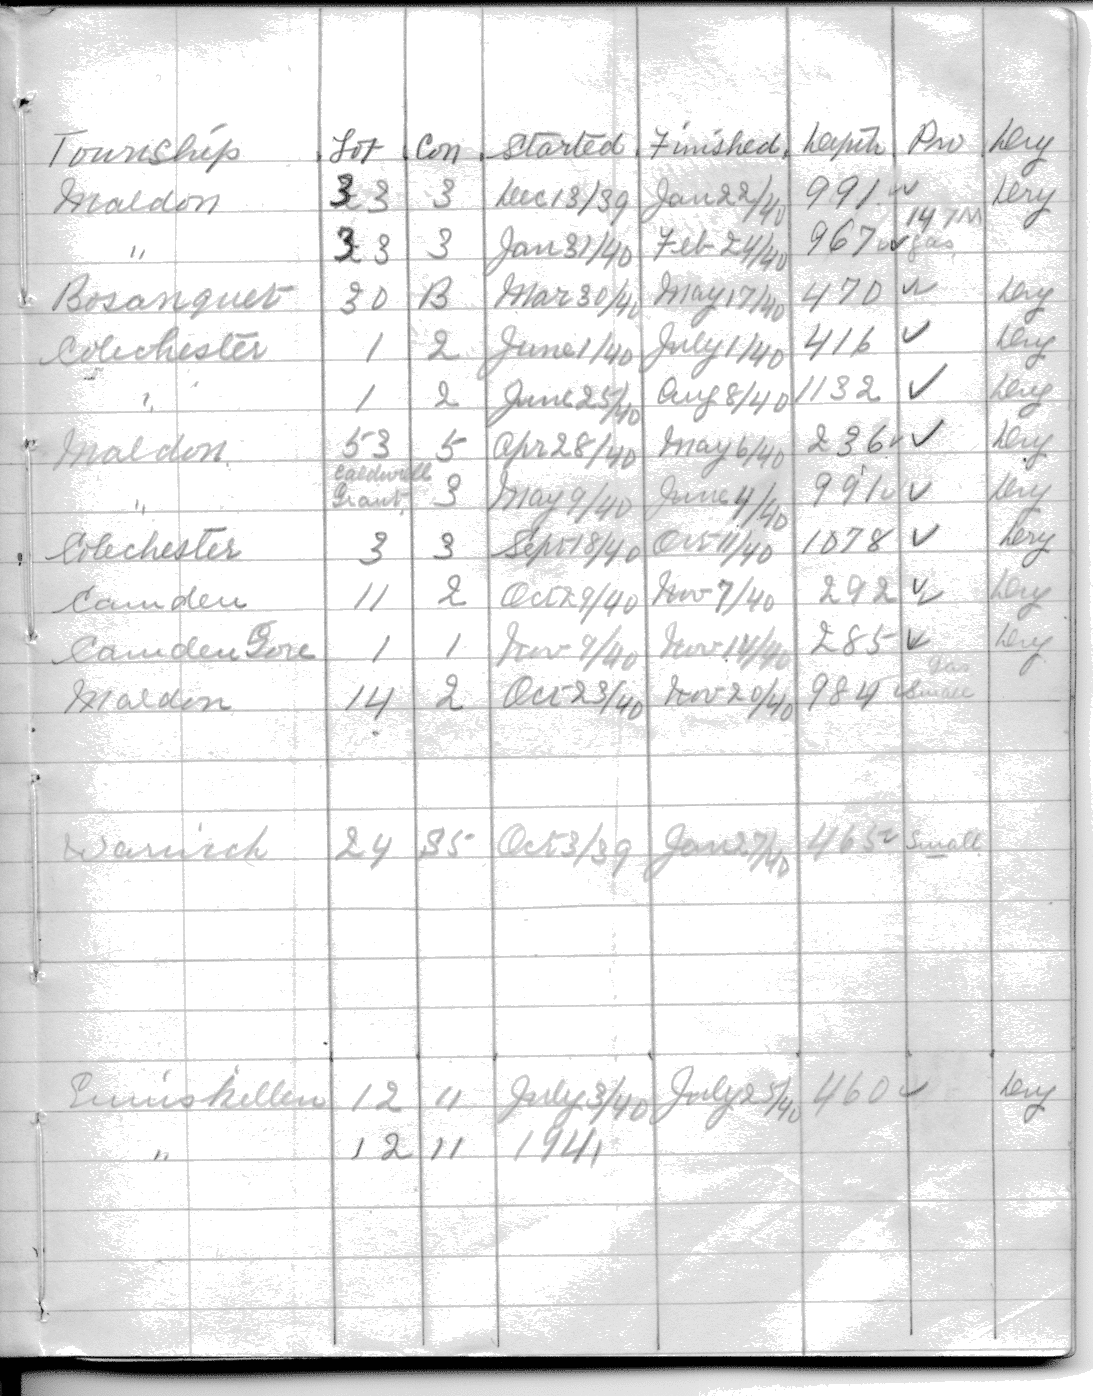 Township Lot Con Started Finished Depth Pro Dry
Maldon 33 3 Dec 13/39 Jan 22/40 991 ✓ Dry
" 33 3 Jan 31/40 Feb 24/40 967 ✓ 147 M gas
Bosanquet 30 B Mar 30/40 May 17/40 470 ✓ Dry
Colechester 1 2 June 1/40 July 1/40 416 ✓ Dry
" 1 2 June 25/40 Aug 8/40 1132 ✓ Dry
Maldon 53 5 Apr 28/40 May 6/40 236 ✓ Dry
" Caldwell Grant 3 May 9/40 June 4/40 991 ✓ Dry
Colechester 3 3 Sept 18/40 Oct 11/40 1078 ✓ Dry
Camden 11 2 Oct 29/40 Nov 7/40 292 ✓ Dry
Camden Gore 1 1 Nov 9/40 Nov 14/40 285 ✓ Dry
Maldon 14 2 Oct 23/40 Nov 20/40 984 ✓ Gas Small
Warwick 24 S5 Oct 3/39 Jan 27/40 465 ✓ Small
Enniskillen 12 11 July 3/40 July 25/40 460 ✓ Dry
" 12 11 1941